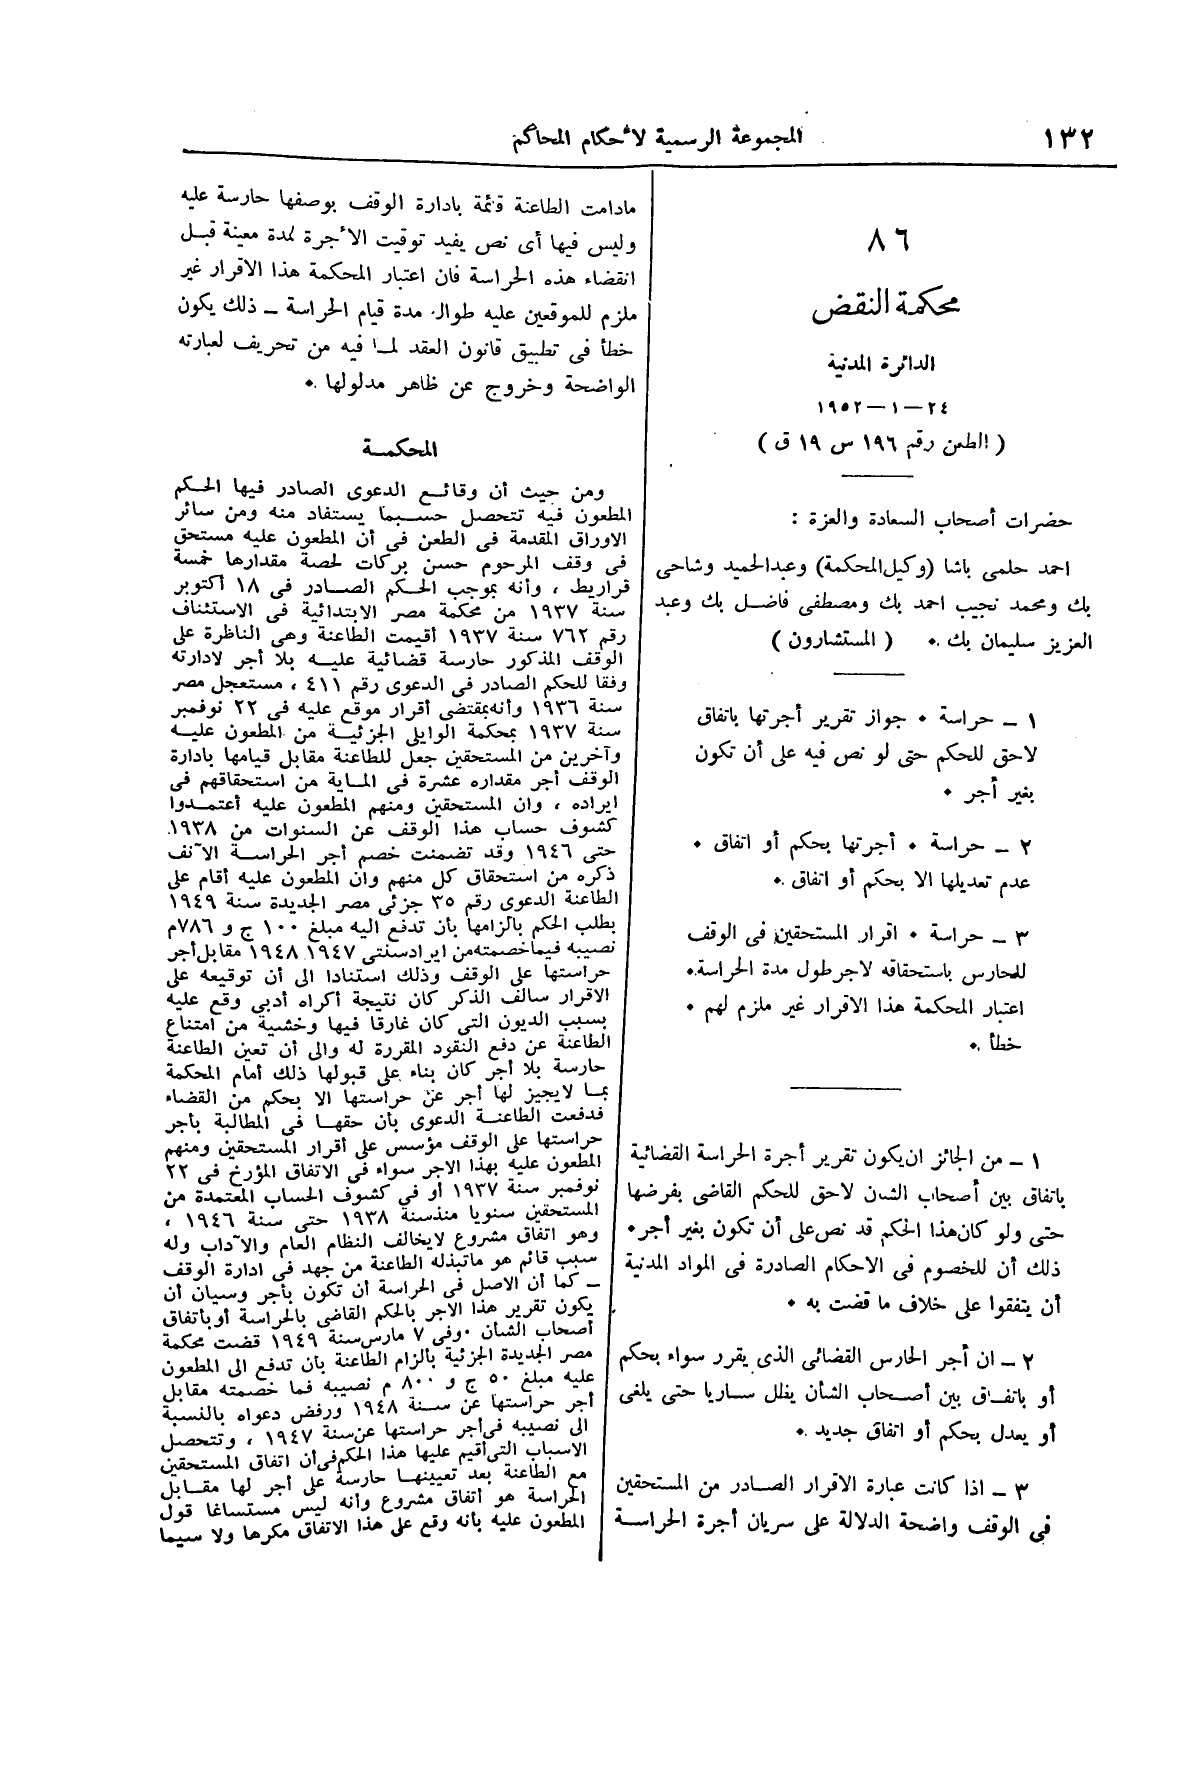 ١٣٢
المجموعة الرسمية لأحكام المحاكم
٨٦
محكمة النقض
الدائرة المدنية
٢٤ – ١ – ١٩٥٢
( الطعن رقم ١٩٦ س ١٩ ق )
حضرات أصحاب السعادة والعزة :
احمد حلمى باشا (وكيل المحكمة) وعبد الحميد وشاحى
بك ومحمد نجيب احمد بك ومصطفى فاضل بك وعبد
العزيز سليمان بك . ( المستشارون )
١ ـ حراسة . جواز تقرير أجرتها باتفاق
لاحق للحكم حتى لو نص فيه على أن تكون
بغير أجر .
٢ ـ حراسة . أجرتها بحكم أو اتفاق .
عدم تعديلها الا بحكم أو اتفاق .
٣ ـ حراسة . اقرار المستحقين فى الوقف
للحارس باستحقاقه لاجر طول مدة الحراسة .
اعتبار المحكمة هذا الاقرار غير ملزم لهم .
خطأ .
١ ـ من الجائز ان يكون تقرير أجرة الحراسة القضائية
باتفاق بين أصحاب الشأن لاحق للحكم القاضى بفرضها
حتى ولو كان هذا الحكم قد نص على أن تكون بغير أجر .
ذلك أن للخصوم فى الاحكام الصادرة فى المواد المدنية
أن يتفقوا على خلاف ما قضت به .
٢ ـ ان أجر الحارس القضائى الذى يقرر سواء بحكم
أو باتفاق بين أصحاب الشأن يظل ساريا حتى يلغى
أو يعدل بحكم أو اتفاق جديد .
٣ ـ اذا كانت عبارة الاقرار الصادر من المستحقين
فى الوقف واضحة الدلالة على سريان أجرة الحراسة
مادامت الطاعنة قائمة بادارة الوقف بوصفها حارسة عليه
وليس فيها أى نص يفيد توقيت الأجرة لمدة معينة قبل
انقضاء هذه الحراسة فان اعتبار المحكمة هذا الاقرار غير
ملزم للموقعين عليه طوال مدة قيام الحراسة ـ ذلك يكون
خطأ فى تطبيق قانون العقد لما فيه من تحريف لعبارته
الواضحة وخروج عن ظاهر مدلولها .
المحكمة
ومن حيث أن وقائع الدعوى الصادر فيها الحكم
المطعون فيه تتحصل حسبما يستفاد منه ومن سائر
الاوراق المقدمة فى الطعن فى أن المطعون عليه مستحق
فى وقف المرحوم حسن بركات لحصة مقدارها خمسة
قراريط ، وأنه بموجب الحكم الصادر فى ١٨ أكتوبر
سنة ١٩٣٧ من محكمة مصر الابتدائية فى الاستئناف
رقم ٧٦٢ سنة ١٩٣٧ أقيمت الطاعنة وهى الناظرة على
الوقف المذكور حارسة قضائية عليه بلا أجر لادارته
وفقا للحكم الصادر فى الدعوى رقم ٤١١ ، مستعجل مصر
سنة ١٩٣٦ وأنه بمقتضى أقرار موقع عليه فى ٢٢ نوفمبر
سنة ١٩٣٧ بمحكمة الوايلى الجزئية من المطعون عليه
وآخرين من المستحقين جعل للطاعنة مقابل قيامها بادارة
الوقف أجر مقداره عشرة فى الماية من استحقاقهم فى
ايراده ، وان المستحقين ومنهم المطعون عليه أعتمدوا
كشوف حساب هذا الوقف عن السنوات من ١٩٣٨
حتى ١٩٤٦ وقد تضمنت خصم أجر الحراسة الآنف
ذكره من استحقاق كل منهم وان المطعون عليه أقام على
الطاعنة الدعوى رقم ٣٥ جزئى مصر الجديدة سنة ١٩٤٩
بطلب الحكم بالزامها بأن تدفع اليه مبلغ ١٠٠ ج و ٧٨٦م
نصيبه فيما خصمته من ايراد سنتى ١٩٤٧ ١٩٤٨ مقابل أجر
حراستها على الوقف وذلك استنادا الى أن توقيعه على
الاقرار سالف الذكر كان نتيجة أكراه أدبى وقع عليه
بسبب الديون التى كان غارقا فيها وخشية من امتناع
الطاعنة عن دفع النقود المقررة له والى أن تعين الطاعنة
حارسة بلا أجر كان بناء على قبولها ذلك أمام المحكمة
بما لايجيز لها أجر عن حراستها الا بحكم من القضاء
فدفعت الطاعنة الدعوى بأن حقها فى المطالبة بأجر
حراستها على الوقف مؤسس على أقرار المستحقين ومنهم
المطعون عليه بهذا الاجر سواء فى الاتفاق المؤرخ فى ٢٢
نوفمبر سنة ١٩٣٧ أو فى كشوف الحساب المعتمدة من
المستحقين سنويا منذسنة ١٩٣٨ حتى سنة ١٩٤٦ ،
وهو اتفاق مشروع لايخالف النظام العام والآداب وله
سبب قائم هو ماتبذله الطاعنة من جهد فى ادارة الوقف
ـ كما أن الاصل فى الحراسة أن تكون بأجر وسيان أن
يكون تقرير هذا الاجر بالحكم القاضى بالحراسة أو بأتفاق
أصحاب الشأن . وفى ٧ مارس سنة ١٩٤٩ قضت محكمة
مصر الجديدة الجزئية بألزام الطاعنة بأن تدفع الى المطعون
عليه مبلغ ٥٠ ج و ٨٠٠ م نصيبه فما خصمته مقابل
أجر حراستها عن سنة ١٩٤٨ ورفض دعواه بالنسبة
الى نصيبه فى أجر حراستها عن سنة ١٩٤٧ ، وتتحصل
الاسباب التى أقيم عليها هذا الحكم فى أن اتفاق المستحقين
مع الطاعنة بعد تعيينها حارسة على أجر لها مقابل
الحراسة هو أتفاق مشروع وأنه ليس مستساغا قول
المطعون عليه بأنه وقع على هذا الاتفاق مكرها ولا سيما